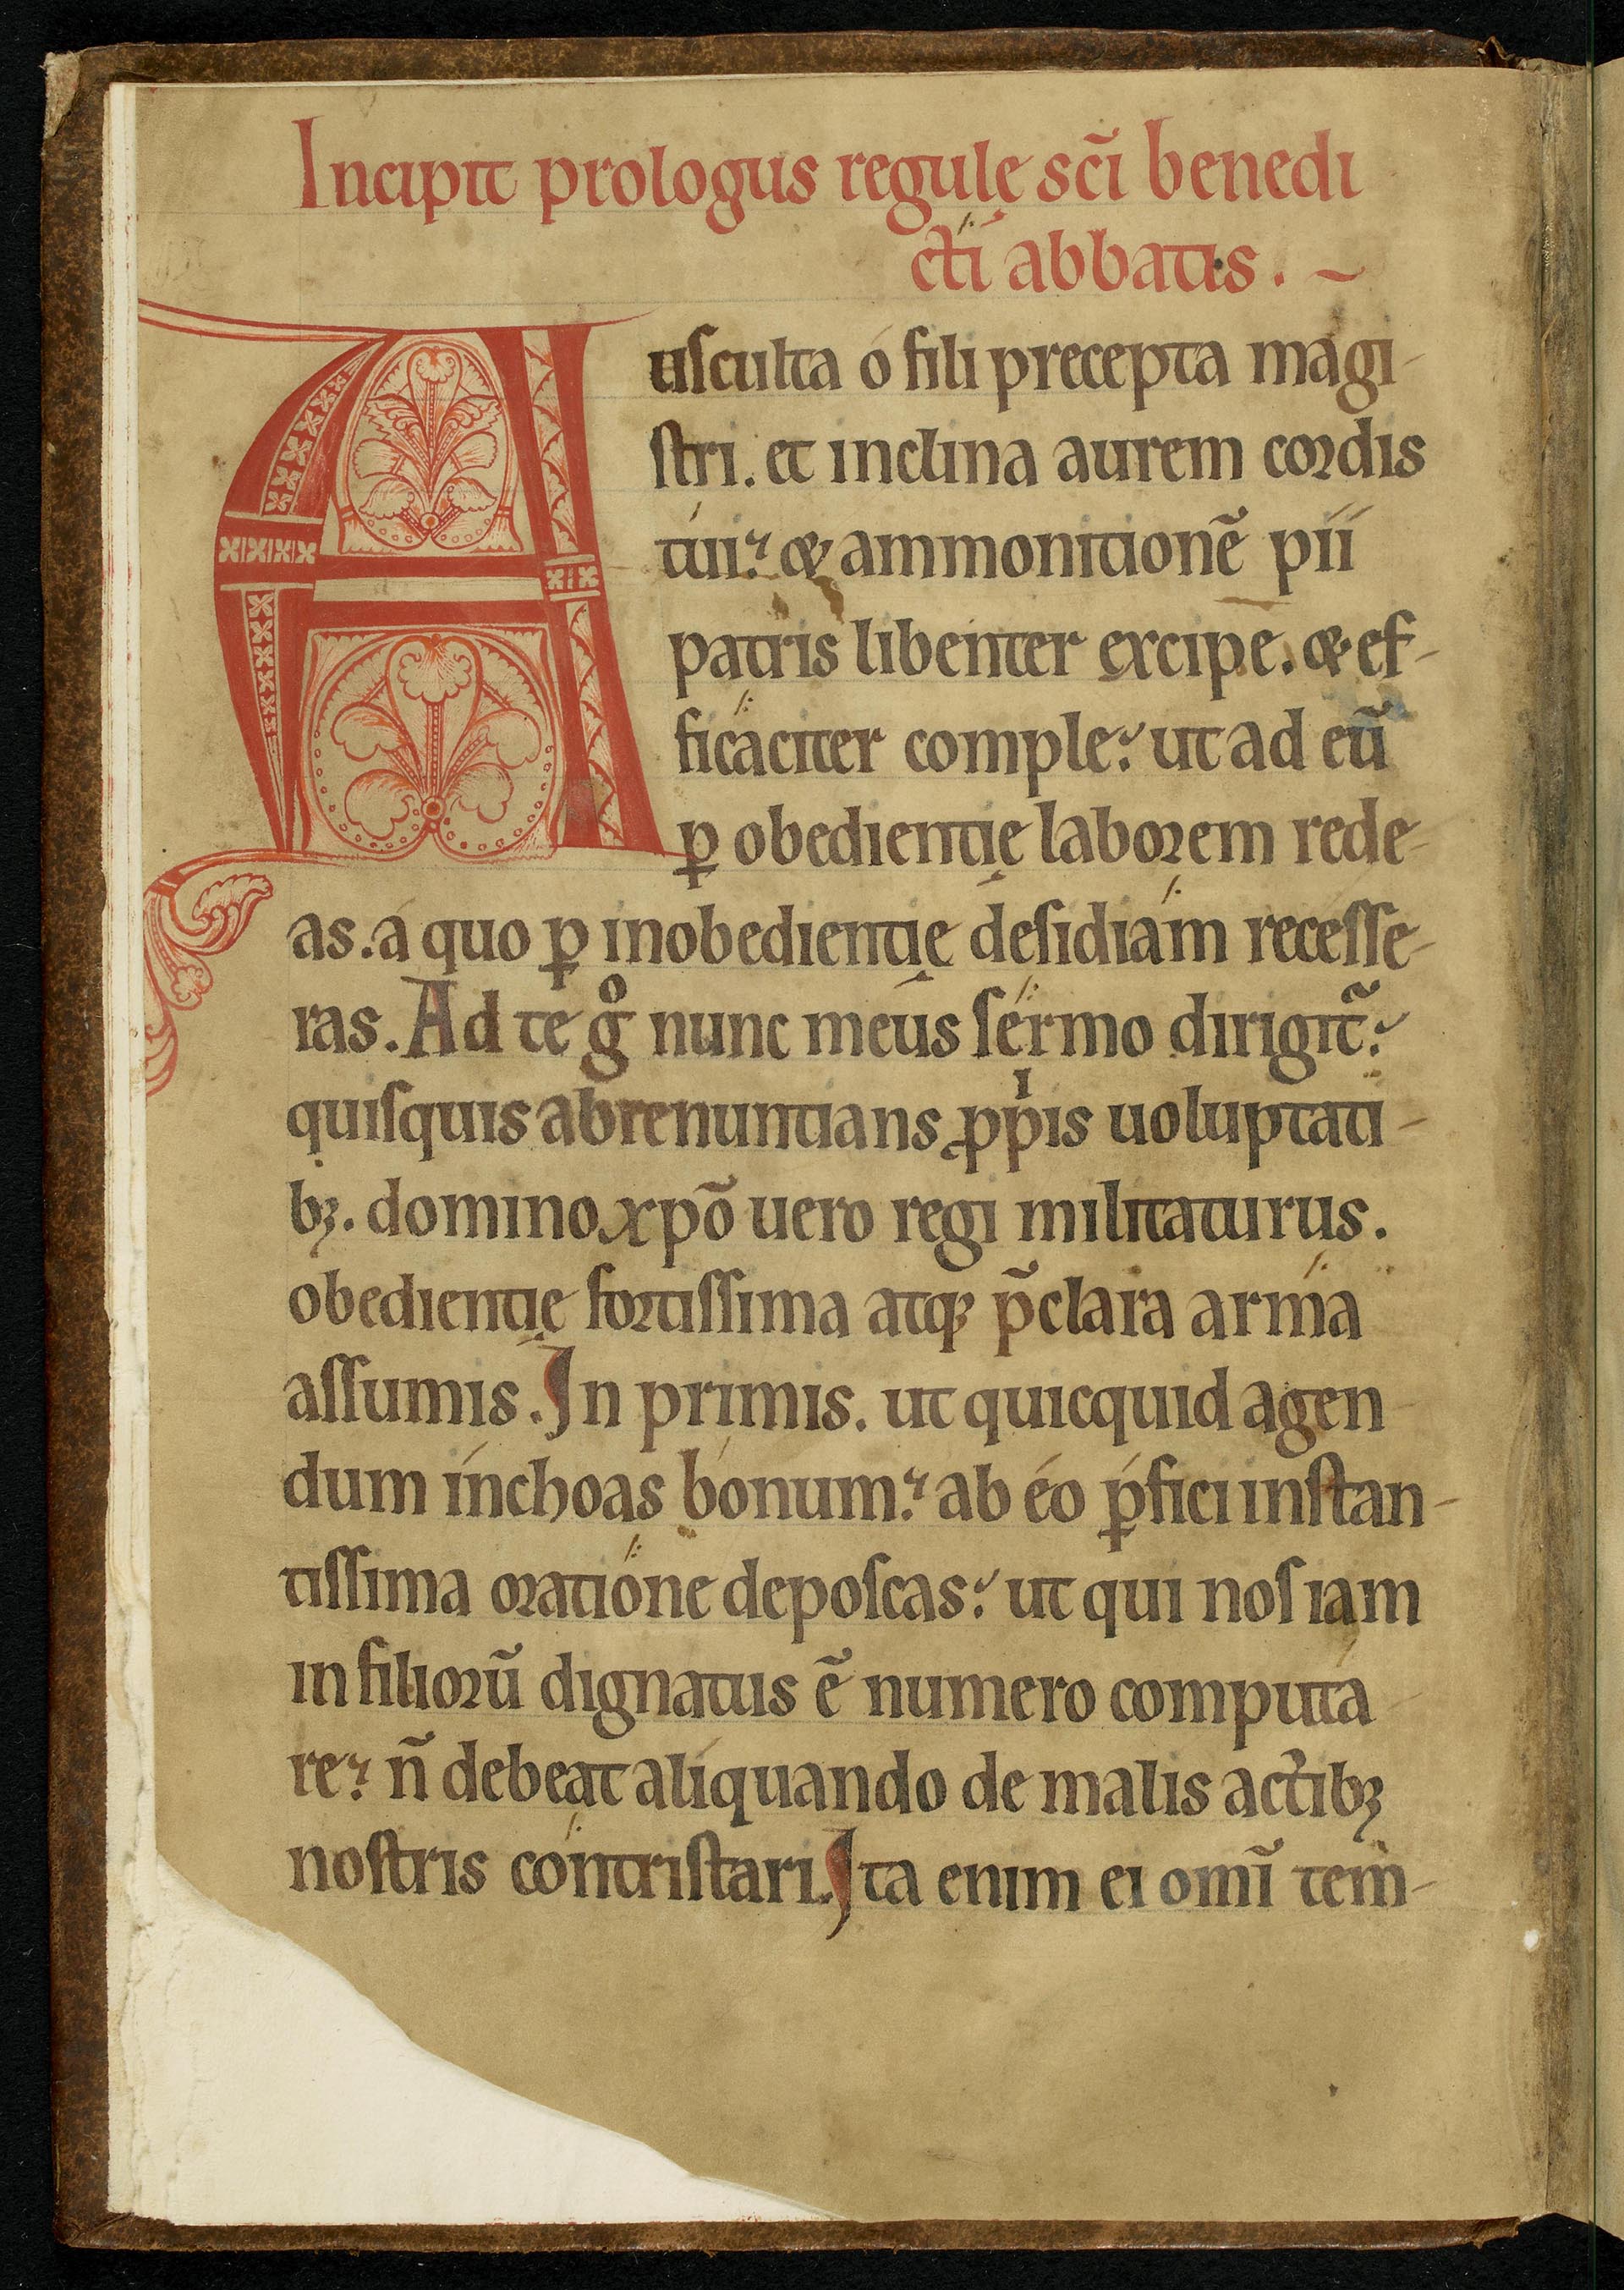 Incipit prologus regulę sc̄i benedi
cti abbatis . ~
Ausculta ó fili precepta magi-
stri. et inclina aurem cordis
tui? & ammonitionē píí
patris libenter excipe. & ef-
ficaciter comple: ut ad eū
ꝑ obedientię laborem rede-
as. á quo ꝑ inobedientię desidiam recesse-
ras. Ad te gͦ nunc meus sermo dirigit̃:
quisquis abrenuntians ꝓpͥis uoluptati-
bꝫ. domino xp̄o uero regi militaturus.
obedientię fortissima atqꝫ p̄clara arma
assumis. In primis. ut quicquid agen
dum ínchoas bonum? ab éo ꝑfici instan-
tissima oratione deposcas: ut qui nos iam
in filiorū dignatus ē numero computa
re? n̄ debeat alíquando de malis actibꝫ
nostris contristari. Ita enim ei omī tem-